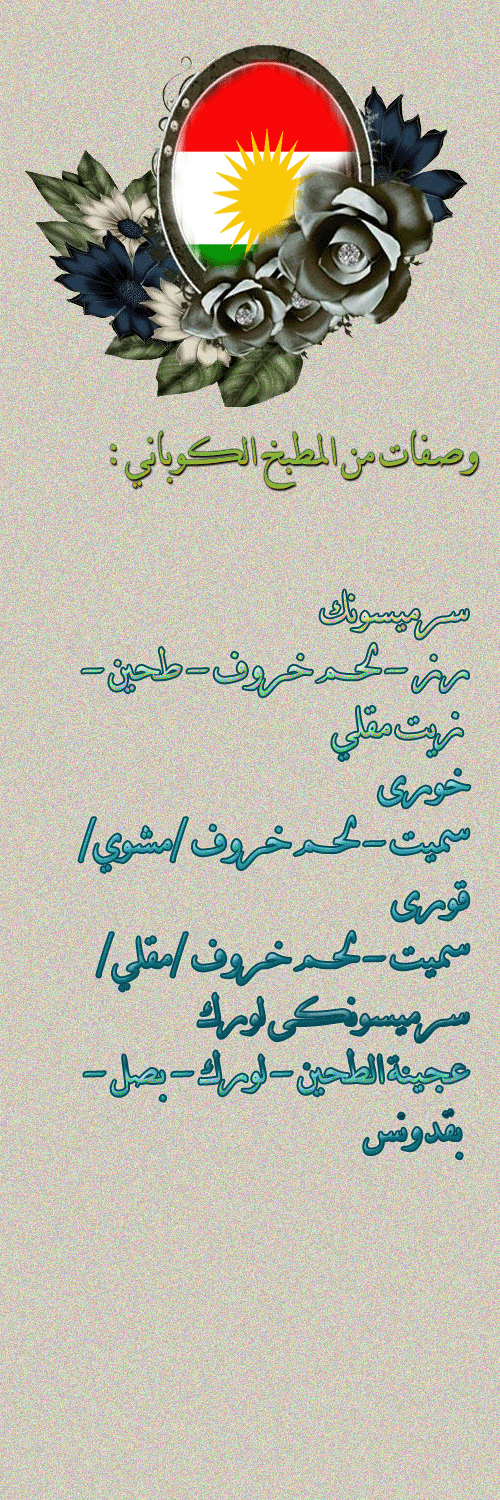 وصفات من المطبخ الكوباني :
سرميسونك
رز - لحم خروف - طحين -
زيت مقلي
خورى
سميت - لحم خروف /مشوي/
قورى
سميت - لحم خروف /مقلي/
سرميسونكى لورك
عجينة الطحين - لورك - بصل -
بقدونس